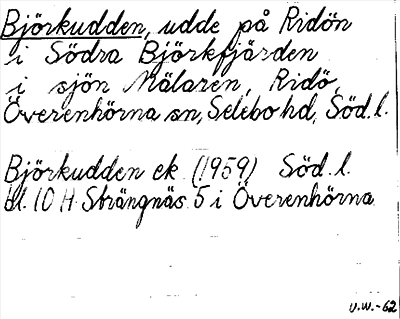 Björkudden, udde på Ridön
i Södra Björkfjärden
i sjön Mälaren, Ridö,
Överenhörna sn, Selebo hd, Söd. l.
Björkudden ek. (1959) Söd. l.
bl. 10 H Strängnäs 5 i Överenhörna
U.W.-62